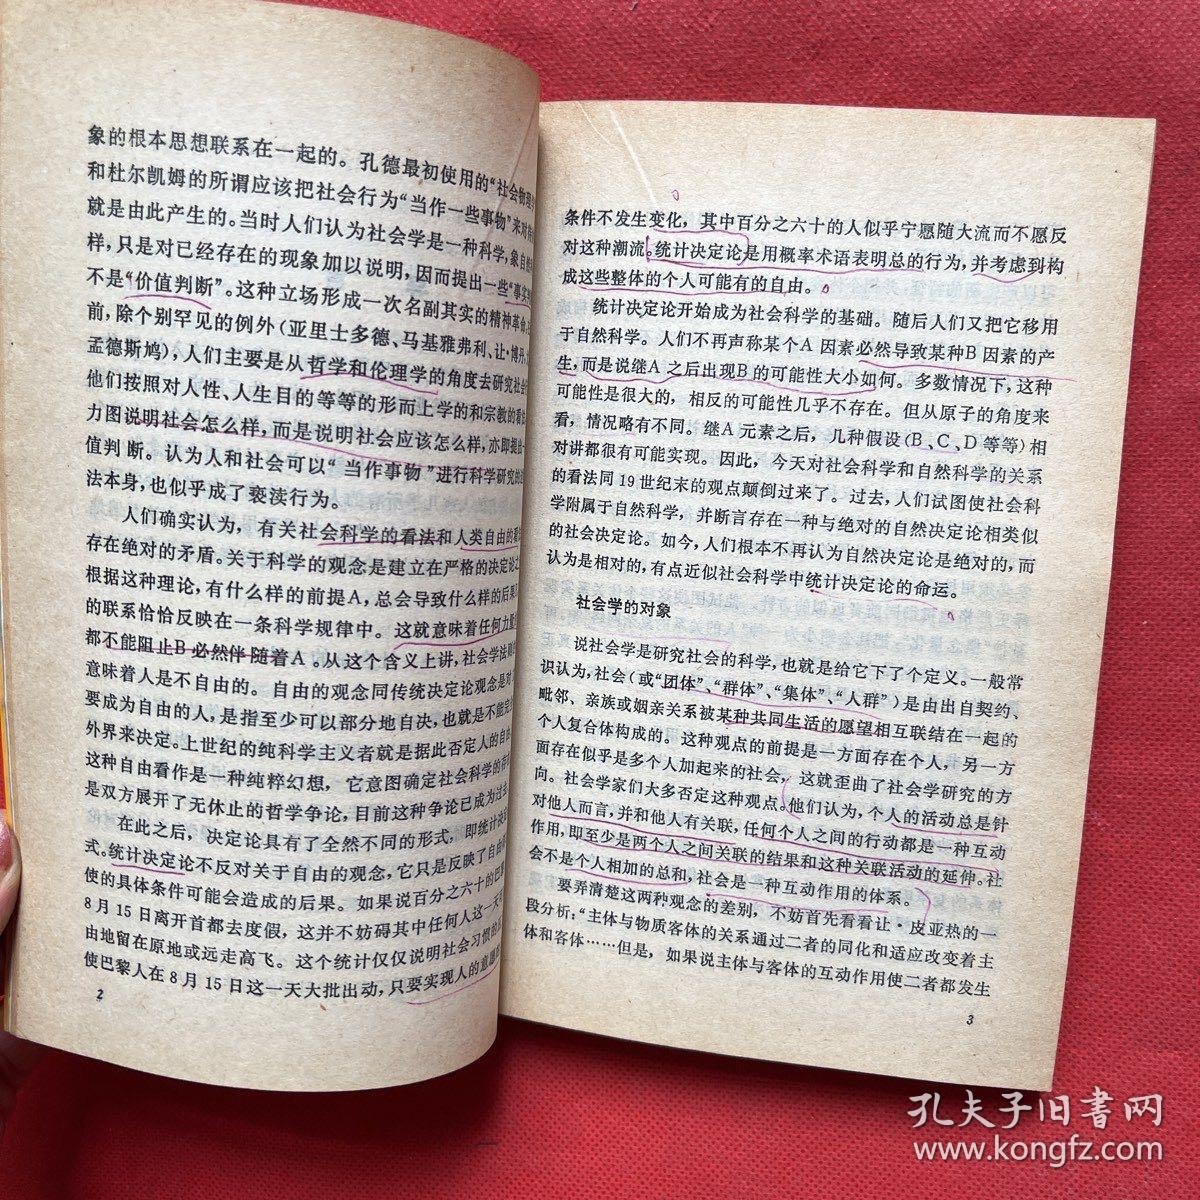 象的根本思想联系在一起的。孔德最初使用的“社会物理
和杜尔凯姆的所谓应该把社会行为“当作一些事物”来对
就是由此产生的。当时人们认为社会学是一种科学，象自然
样，只是对已经存在的现象加以说明，因而提出一些“事实判
不是“价值判断”。这种立场形成一次名副其实的精神革命，
前，除个别罕见的例外(亚里士多德、马基雅弗利、让·博丹、
孟德斯鸠)，人们主要是从哲学和伦理学的角度去研究社会
他们按照对人性、人生目的等等的形而上学的和宗教的看
力图说明社会怎么样，而是说明社会应该怎么样，亦即提出
值判断。认为人和社会可以“当作事物”进行科学研究的
法本身，也似乎成了亵渎行为。
人们确实认为，有关社会科学的看法和人类自由的看
存在绝对的矛盾。关于科学的观念是建立在严格的决定论之
根据这种理论，有什么样的前提A，总会导致什么样的后果
的联系恰恰反映在一条科学规律中。这就意味着任何力量
都不能阻止B必然伴随着A。从这个含义上讲，社会学法则
意味着人是不自由的。自由的观念同传统决定论观念是对
要成为自由的人，是指至少可以部分地自决，也就是不能完
外界来决定。上世纪的纯科学主义者就是据此否定人的自由
这种自由看作是一种纯粹幻想，它意图确定社会科学的
是双方展开了无休止的哲学争论，目前这种争论已成为过
在此之后，决定论具有了全然不同的形式，即统计决定
式。统计决定论不反对关于自由的观念，它只是反映了自由
使的具体条件可能会造成的后果。如果说百分之六十的巴
8月15日离开首都去度假，这并不妨碍其中任何人这一天
由地留在原地或远走高飞。这个统计仅仅说明社会习惯的
使巴黎人在8月15日这一天大批出动，只要实现人的意愿
2
条件不发生变化，其中百分之六十的人似乎宁愿随大流而不愿反
对这种潮流。统计决定论是用概率术语表明总的行为，并考虑到构
成这些整体的个人可能有的自由。
统计决定论开始成为社会科学的基础。随后人们又把它移用
于自然科学。人们不再声称某个A因素必然导致某种B因素的产
生，而是说继A之后出现B的可能性大小如何。多数情况下，这种
可能性是很大的，相反的可能性几乎不存在。但从原子的角度来
看，情况略有不同。继A元素之后，几种假设(B、C、D等等)相
对讲都很有可能实现。因此，今天对社会科学和自然科学的关系
的看法同19世纪末的观点颠倒过来了。过去，人们试图使社会科
学附属于自然科学，并断言存在一种与绝对的自然决定论相类似
的社会决定论。如今，人们根本不再认为自然决定论是绝对的，而
认为是相对的，有点近似社会科学中统计决定论的命运。
社会学的对象
说社会学是研究社会的科学，也就是给它下了个定义。一般常
识认为，社会(或“团体”、“群体”、“集体”、“人群”)是由出自契约、
毗邻、亲族或姻亲关系被某种共同生活的愿望相互联结在一起的
个人复合体构成的。这种观点的前提是一方面存在个人，另一方
面存在似乎是多个人加起来的社会，这就歪曲了社会学研究的方
向。社会学家们大多否定这种观点。他们认为，个人的活动总是针
对他人而言，并和他人有关联，任何个人之间的行动都是一种互动
作用，即至少是两个人之间关联的结果和这种关联活动的延伸。社
会不是个人相加的总和，社会是一种互动作用的体系。
要弄清楚这两种观念的差别，不妨首先看看让·皮亚热的一
段分析：“主体与物质客体的关系通过二者的同化和适应改变着主
体和客体……但是，如果说主体与客体的互动作用使二者都发生
3
孔夫子旧书网
www.kongfz.com